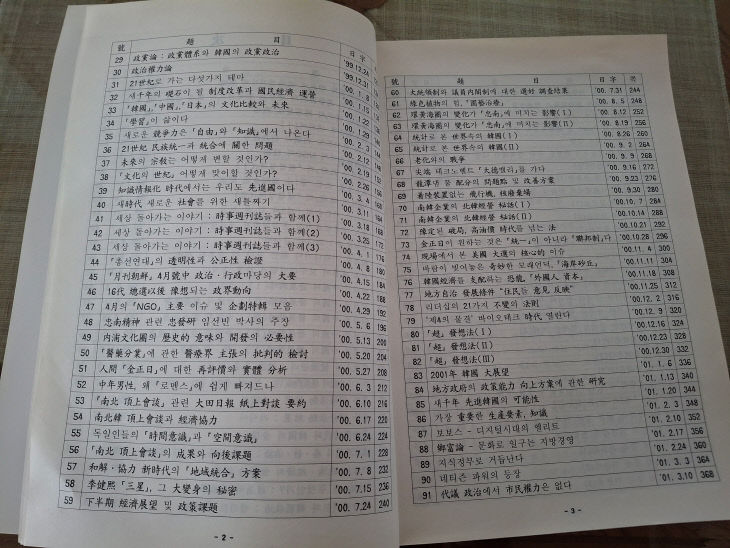 號 題 目 日字
29 政黨論 : 政黨體系와 韓國의 政黨政治 '99.12.24
30 政治權力論 '99.12.31
31 21世紀로 가는 다섯가지 테마 '00. 1. 8
32 새千年의 礎石이 될 制度改革과 國民經濟 運營
33 「韓國」,「中國」,「日本」의 文化比較와 未來
34 「學習」이 삶이다
35 새로운 競爭力은 「自由」와「知識」에서 나온다
36 21世紀 民族統一과 統合에 關한 問題 '00. 2. 3 142
37 未來의 宗敎는 어떻게 변할 것인가? '00. 2.12 146
38 「文化의 世紀」어떻게 맞이할 것인가? '00. 2.19
39 知識情報化 時代에서는 우리도 先進國이다 '00. 2.26 156
40 새時代 새로운 社會를 위한 새틀짜기 '00. 3. 4
41 세상 돌아가는 이야기 : 時事週刊誌들과 함께(1) '00. 3.11 168
42 세상 돌아가는 이야기 : 時事週刊誌들과 함께(2) '00. 3.18 172
43 세상 돌아가는 이야기 : 時事週刊誌들과 함께(3) '00. 3.25 176
44 「총선연대」의 透明性과 公正性 檢證 '00. 4. 1
45 「月刊朝鮮」4月號中 政治·行政마당의 大要 '00. 4. 8
46 16代 總選以後 豫想되는 政界動向 '00. 4.15
47 4月의「NGO」主要 이슈 및 企劃特輯 모음 '00. 4.22 189
48 忠南精神 관련 忠發硏 임선빈 박사의 주장 '00. 4.29 192
49 內浦文化圈의 歷史的 意味와 開發의 必要性 '00. 5. 6 196
50 「醫藥分業」에 관한 醫療界 主張의 批判的 檢討 '00. 5.13 200
51 人間「金正日」에 대한 再評價와 實體 分析 '00. 5.20 204
52 中年男性, 왜「로맨스」에 쉽게 빠져드나 '00. 5.27 208
53 「南北 頂上會談」관련 大田日報 紙上對談 要約 '00. 6. 3 212
54 南北韓 頂上會談과 經濟協力 '00. 6.10 216
55 독일인들의「時間意識」과「空間意識」 '00. 6.17 220
56 「南北 頂上會談」의 成果와 向後課題 '00. 6.24 224
57 和解·協力 新時代의「地域統合」方案 '00. 7. 1 228
58 李健熙「三星」, 그 大變身의 秘密 '00. 7. 8 232
59 下半期 經濟展望 및 政策課題 '00. 7.15 236
'00. 7.24 240
- 2 -
號 題 目 日字
60 大統領制와 議員內閣制에 대한 選好 調査結果 '00. 7.31 244
61 綠色植物의 힘,「園藝治療」 '00. 8. 5 248
62 環黃海圈의 變化가「忠南」에 미치는 影響(Ⅰ) '00. 8.12 252
63 環黃海圈의 變化가「忠南」에 미치는 影響(Ⅱ) '00. 8.19 256
64 統計로 본 世界속의 韓國(Ⅰ) '00. 8.26 260
65 統計로 본 世界속의 韓國(Ⅱ) '00. 9. 2 264
66 老化와의 戰爭 '00. 9. 9 268
67 尖端 테크노랜드「大德밸리」를 가다 '00. 9.16 272
68 龍潭댐 물 配分의 問題點 및 改善方案 '00. 9.23 276
69 着陸裝置없는 飛行機, 核廢棄場 '00. 9.30 280
70 南韓企業의 北韓經營 秘話(Ⅰ) '00.10. 7 284
71 南韓企業의 北韓經營 秘話(Ⅱ) '00.10.14 288
72 豫定된 破局, 高油價 時代를 넘는 法 '00.10.21 292
73 金正日이 원하는 것은「統一」이 아니라「聯邦制」다 '00.10.28 296
74 現場에서 본 美國 大選의 核心的 이슈 '00.11. 4 300
75 바람이 빚어놓은 奇妙한 모래언덕,「海岸砂丘」 '00.11.11 304
76 韓國經濟를 支配하는 恐龍,「外國人 資本」 '00.11.18 308
77 地方自治 發展條件 "住民들 意見 反映" '00.11.25 312
78 리더십의 21가지 不變의 法則 '00.12. 2 316
79 '제4의 물결' 바이오테크 時代 열린다 '00.12. 9 320
80 「超」發想法(Ⅰ) '00.12.16 324
81 「超」發想法(Ⅱ) '00.12.23 328
82 「超」發想法(Ⅲ) '00.12.30 332
83 2001年 韓國 大展望 '01. 1. 6 336
84 地方政府의 政策能力 向上方案에 관한 硏究 '01. 1.13 340
85 새千年 先進韓國의 可能性 '01. 1.20 344
86 가장 重要한 生産要素, 知識 '01. 2. 3 348
87 보보스 - 디지털시대의 엘리트 '01. 2.10 352
88 鄕富論 - 문화로 일구는 지방경영 '01. 2.17 356
89 지식정부로 거듭난다 '01. 2.24 360
90 네티즌 파워의 등장 '01. 3. 3 364
91 代議 政治에서 市民權力은 없다 '01. 3.10 368
- 3 -